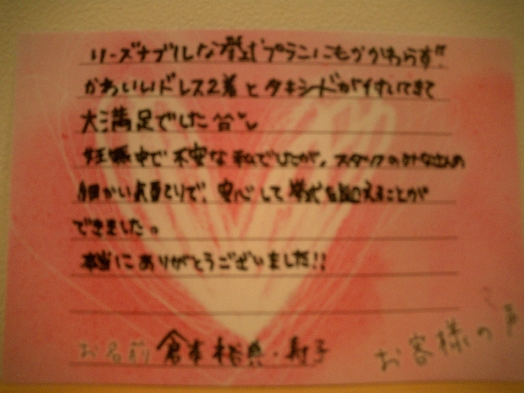 リーズナブルな挙式プランにもかかわらず!!
かわいいドレス2着とタキシードが付いてきて
大満足でした^^
妊娠中で不安な私でしたが、スタッフのみなさんの
細かい気配りで、安心して挙式を迎えることが
できました。
本当にありがとうございました!!
お名前 倉本 ・寿子
お客様の声